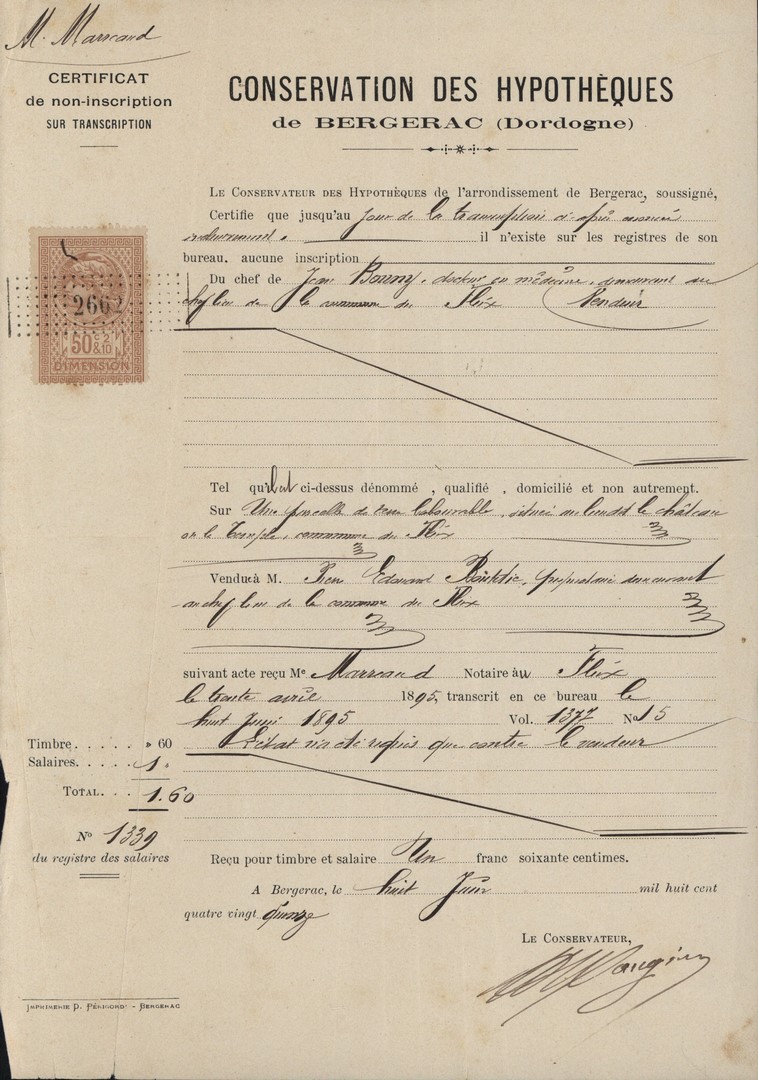 M. Marceaud
CERTIFICAT
de non-inscription
SUR TRANSCRIPTION
CONSERVATION DES HYPOTHÈQUES
de BERGERAC (Dordogne)
LE CONSERVATEUR DES HYPOTHÈQUES de l'arrondissement de Bergerac, soussigné,
Certifie que jusqu'au jour de la transcription ci-après
il n'existe sur les registres de son
bureau. aucune inscription
Du chef de Jean docteur en médecine, demeurant au
chef lieu de la commune du Fleix Vendeur
2662
50c 2 & 10
DIMENSION
Tel qu'il est ci-dessus dénommé , qualifié , domicilié et non autrement.
Sur Une parcelle de terre labourable, située au lieu dit le château
ou le Temple, commune du Fleix
Vendu à M. Edouard propriétaire demeurant
au chef lieu de la commune du Fleix
suivant acte reçu Me Marceaud Notaire au Fleix
le trente avril 1895, transcrit en ce bureau le
huit Juin 1895 Vol. 1377 No 15
L'état n'a été requis que contre le vendeur
Timbre..... » 60
Salaires..... 1 »
TOTAL... 1.60
No 1339
du registre des salaires
Reçu pour timbre et salaire Un franc soixante centimes.
A Bergerac, le huit Juin mil huit cent
quatre vingt quinze
LE CONSERVATEUR,
IMPRIMERIE D. PÉRIGORD - BERGERAC